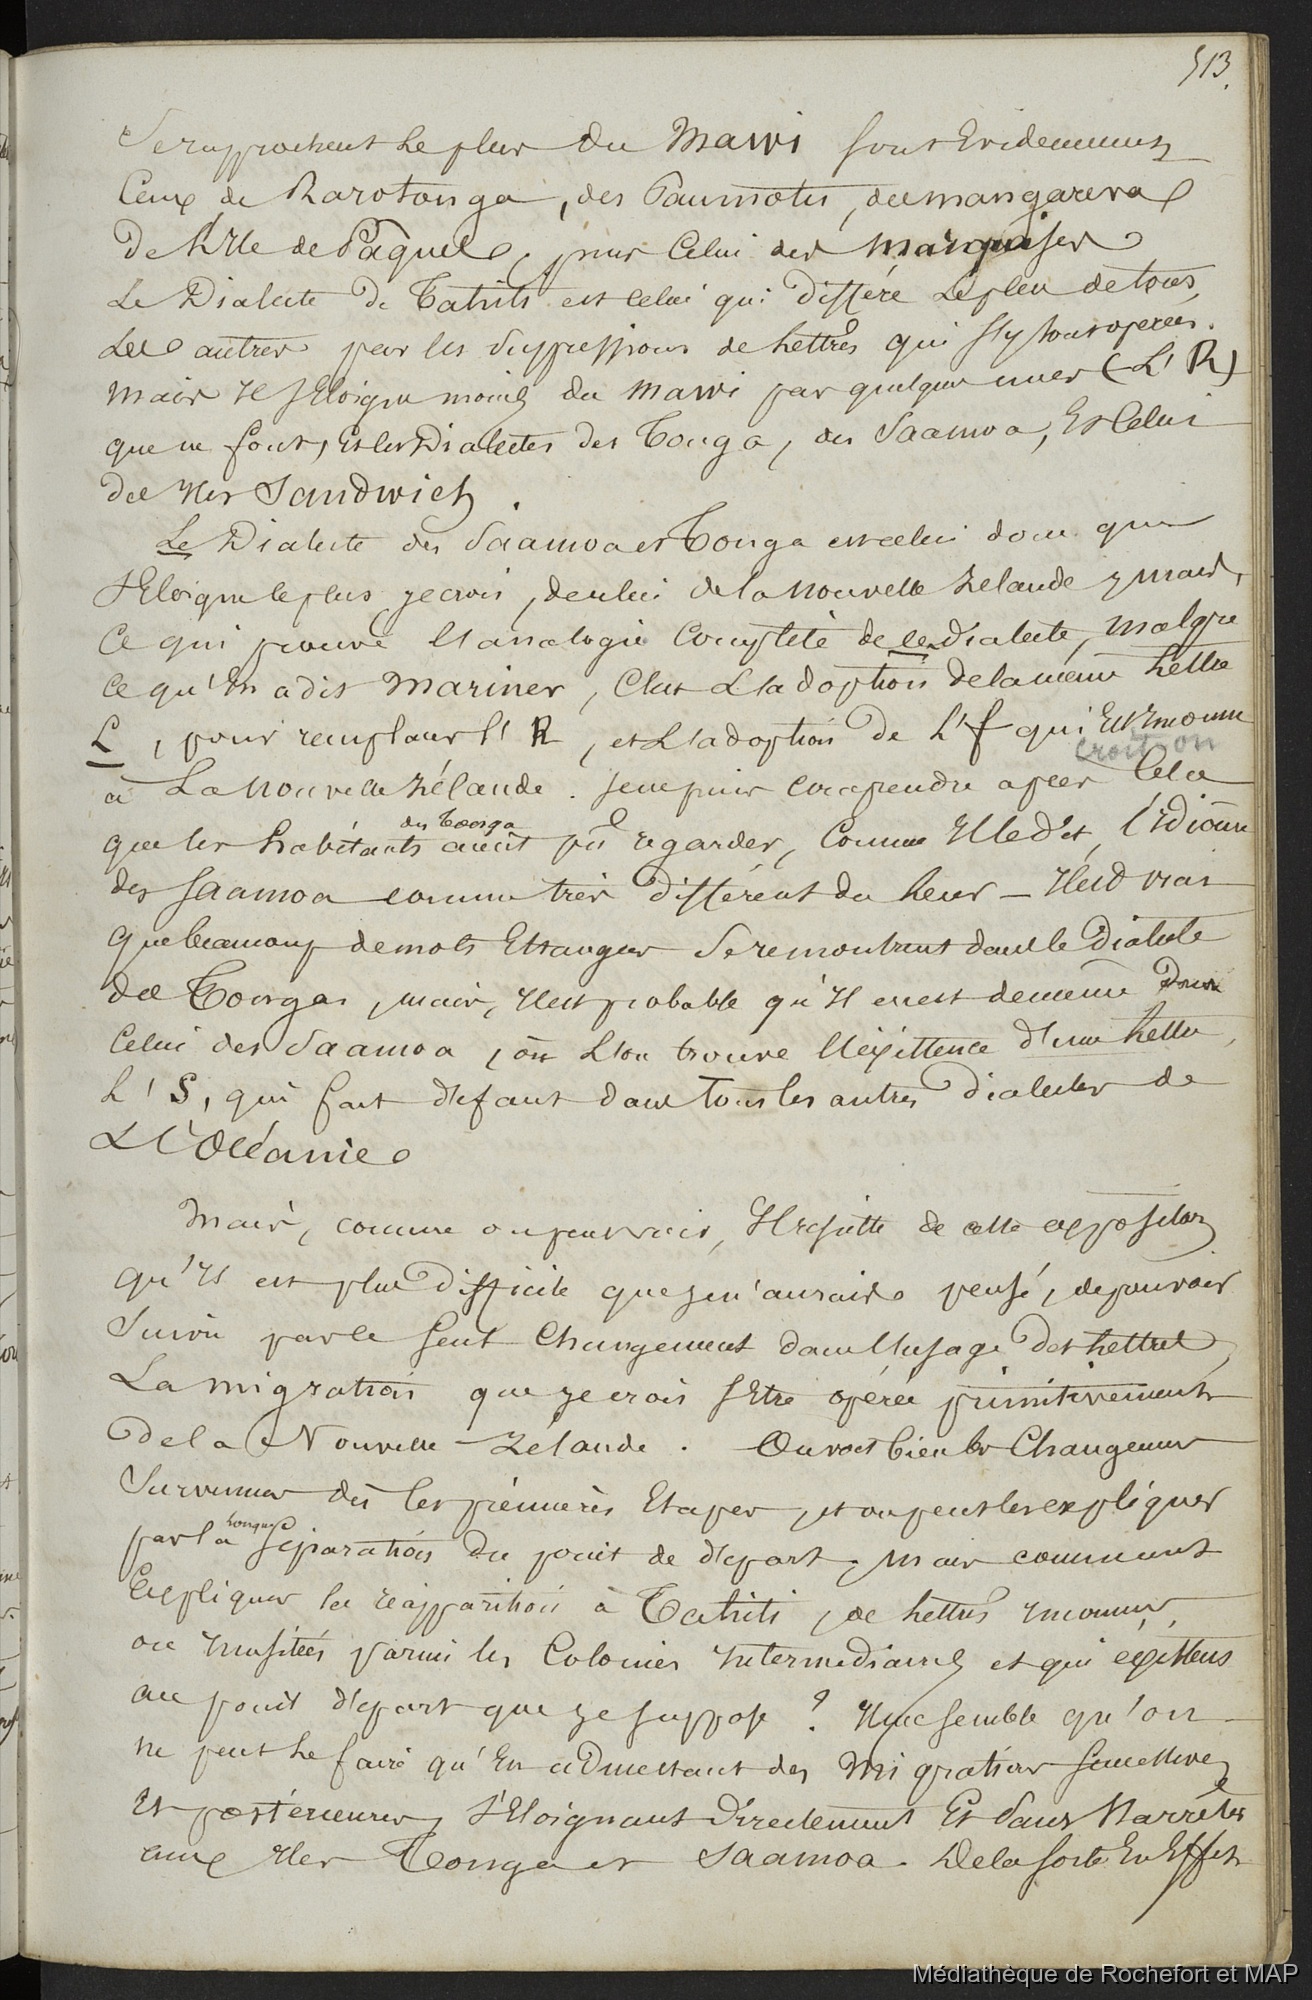 513.
se rapprochent le plus du Mawi sont Evidemment
Ceux de Rarotonga, des Paumotu, de mangareva
De l'Ile de Pâques, puis Celui des Marquises
Le Dialecte de Tahiti est celui qui diffère le plus de tous
Les autres par les suppressions de Lettres qui s'y sont operées.
mais Il s'Eloigne moins du mawi par quelques unes (L' R)
que ne font, Et les Dialectes des Tonga, des Saamoa, Et Celui
des Iles Sandwich.
Le Dialecte des Saamoa et Tonga est celui donc qui
s'Eloigne le plus je crois, de celui de la nouvelle Zelande, mais,
Ce qui prouve l'analogie Complète de ce dialecte, malgré
Ce qu'En a dit Mariner, C'est L'adoption de la même Lettre
L, pour remplacer l' R, et L'adoption de L' f qui Est Inconnue
croit-on
à La nouvelle Zélande. je ne puis comprendre après Cela
des Tonga
que les habitants aient pû regarder, Comme Il le dit, l'Idiôme
des Saamoa comme très différent du Leur — Il est vrai
que beaucoup de mots Etrangers se remontrent dans le Dialecte
des Tonga, mais, Il est probable qu'Il en est de même dans
Celui des Saamoa, où L'on trouve l'éxistence d'une Lettre,
L' S, qui fait défaut dans tous les autres dialectes de
L'Océanie
Mais, comme on peut voir, Il résulte de cette exposition
qu'Il est plus difficile que je n'aurais pensé, de pouvoir
Suivre par le seul Changement dans l'usage des Lettres,
La migration que je crois s'Etre opérée primitivement
De la Nouvelle-Zélande. On voit bien les Changemens
Survenus dès les prémières Etapes, et on peut les expliquer
longue
par la séparation du point de départ, mais comment
Expliquer la réapparition à Tahiti, de Lettres Inconnues,
ou Inusitées parmi les Colonies Intermediaires et qui éxistent
au point départ que je suppose? Il me semble qu'on
ne peut le faire qu'En admettant des Migrations successives
Et postérieures, s'Eloignant Directement Et sans s'arrêter
aux Iles Tonga et Saamoa. De la sorte En Effet
Médiathèque de Rochefort et MAP